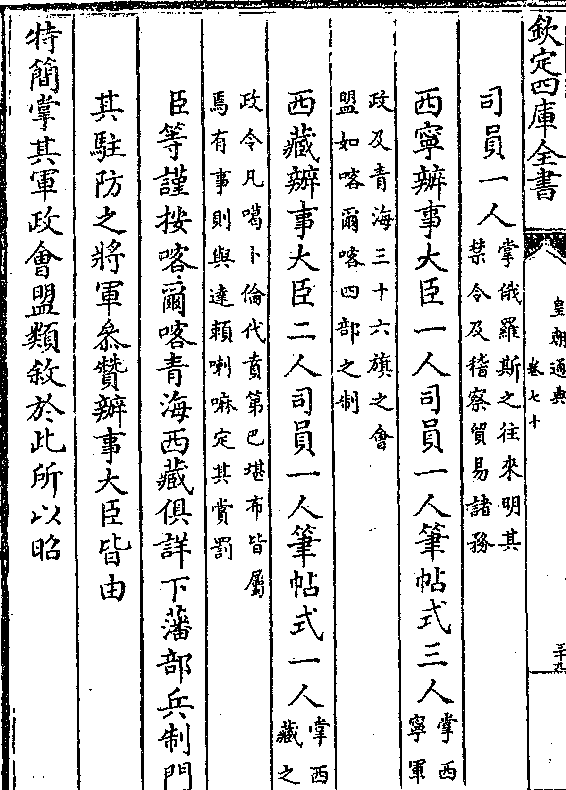 欽定四庫全書
皇朝通典
卷七十
司員一人掌俄羅斯之往來明其
禁令及稽察貿易諸務
西寧辦事大臣一人司員一人筆帖式三人掌西
寧軍
政及青海三十六旗之會
盟如喀爾喀四部之制
西藏辦事大臣二人司員一人筆帖式一人掌西
藏之
政令凡噶卜倫代賁第巴堪布皆屬
焉有事則與達賴喇嘛定其賞罰
臣等謹按喀爾喀青海西藏俱詳下藩部兵制門
其駐防之將軍叅贊辦事大臣皆由
特簡掌其軍政會盟類敘於此所以昭